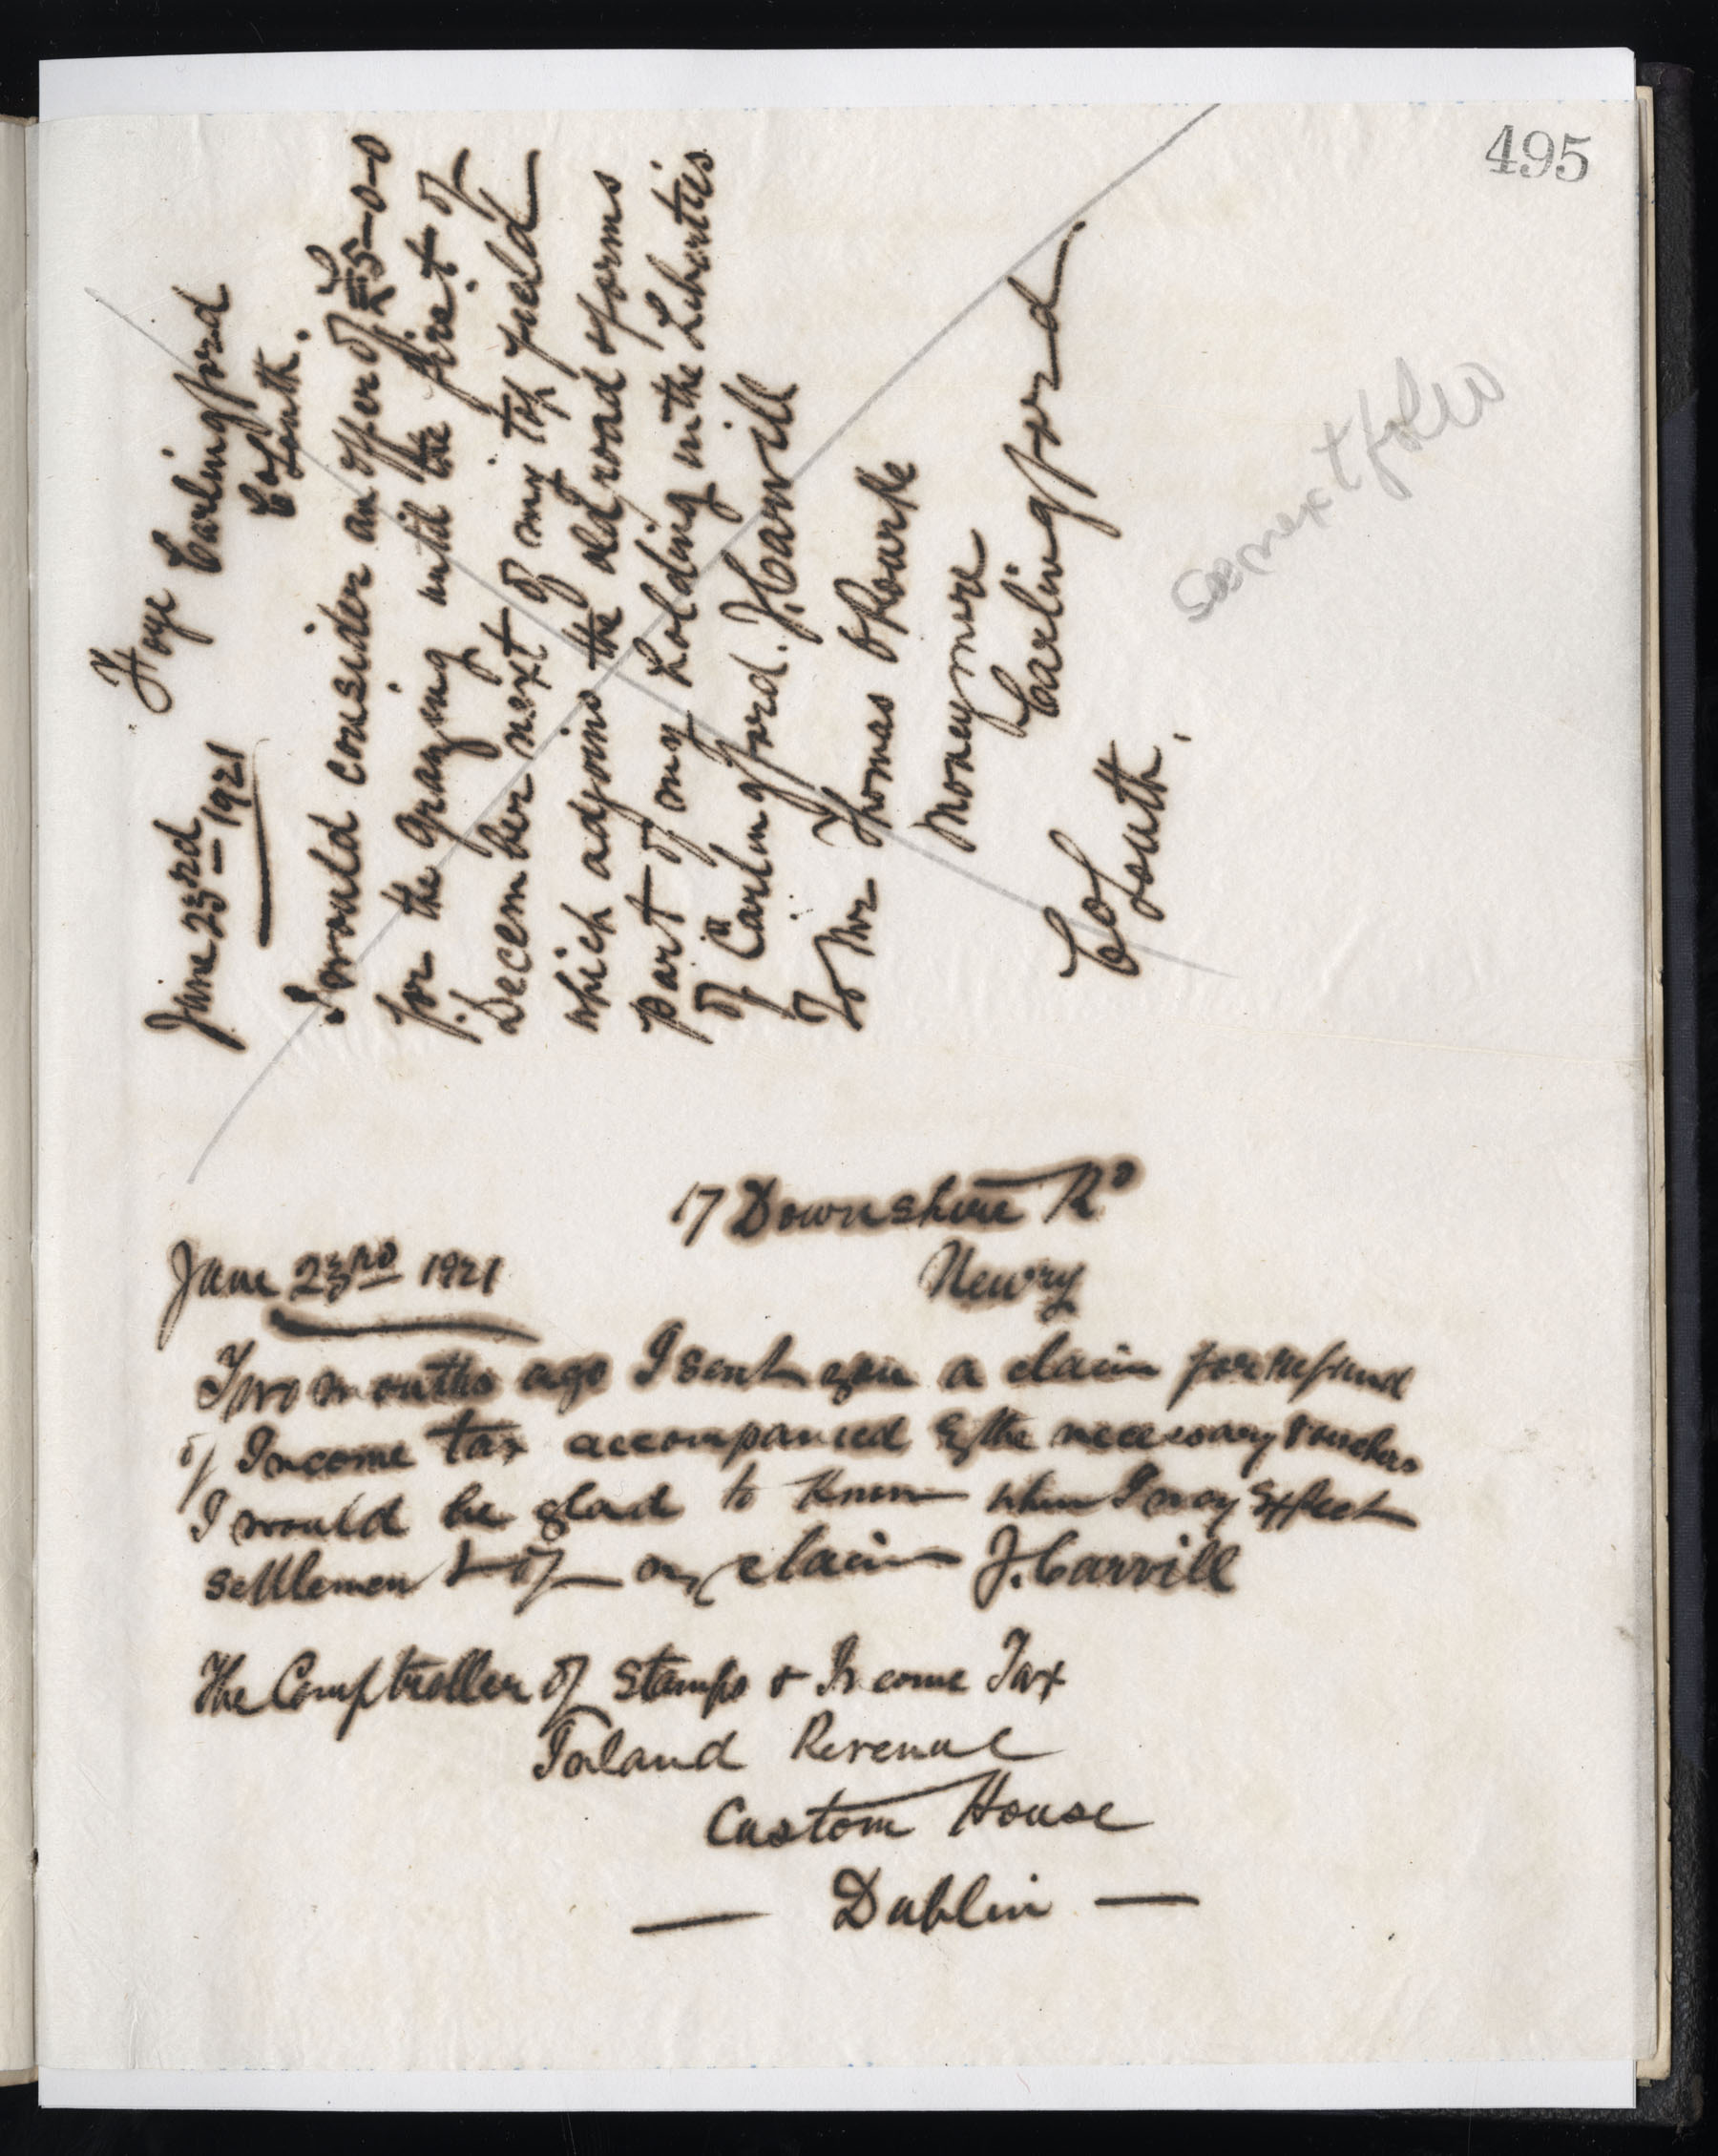 495
June 23rd 1921
Foye Carlingford
Co Louth.
I would consider an offer of £5-0-0
for the grazing until the first of
December next of my top field
which adjoins the old road & forms
part of my holding in the Liberties
of Carlingford. J. Carvill
To Mr Thomas O Rourke
Mooneymore
Carlingford
Co Louth.
see next folio
17 Downshire Rd
Newry
June 23rd 1921
Two months ago I sent you a claim for refund
of Income tax accompanied by the necessary vouchers
I would be glad to know when I may expect
settlement of my claim J. Carvill
The Comptroller of Stamps & Income Tax
Inland Revenue
Custom House
— Dublin —